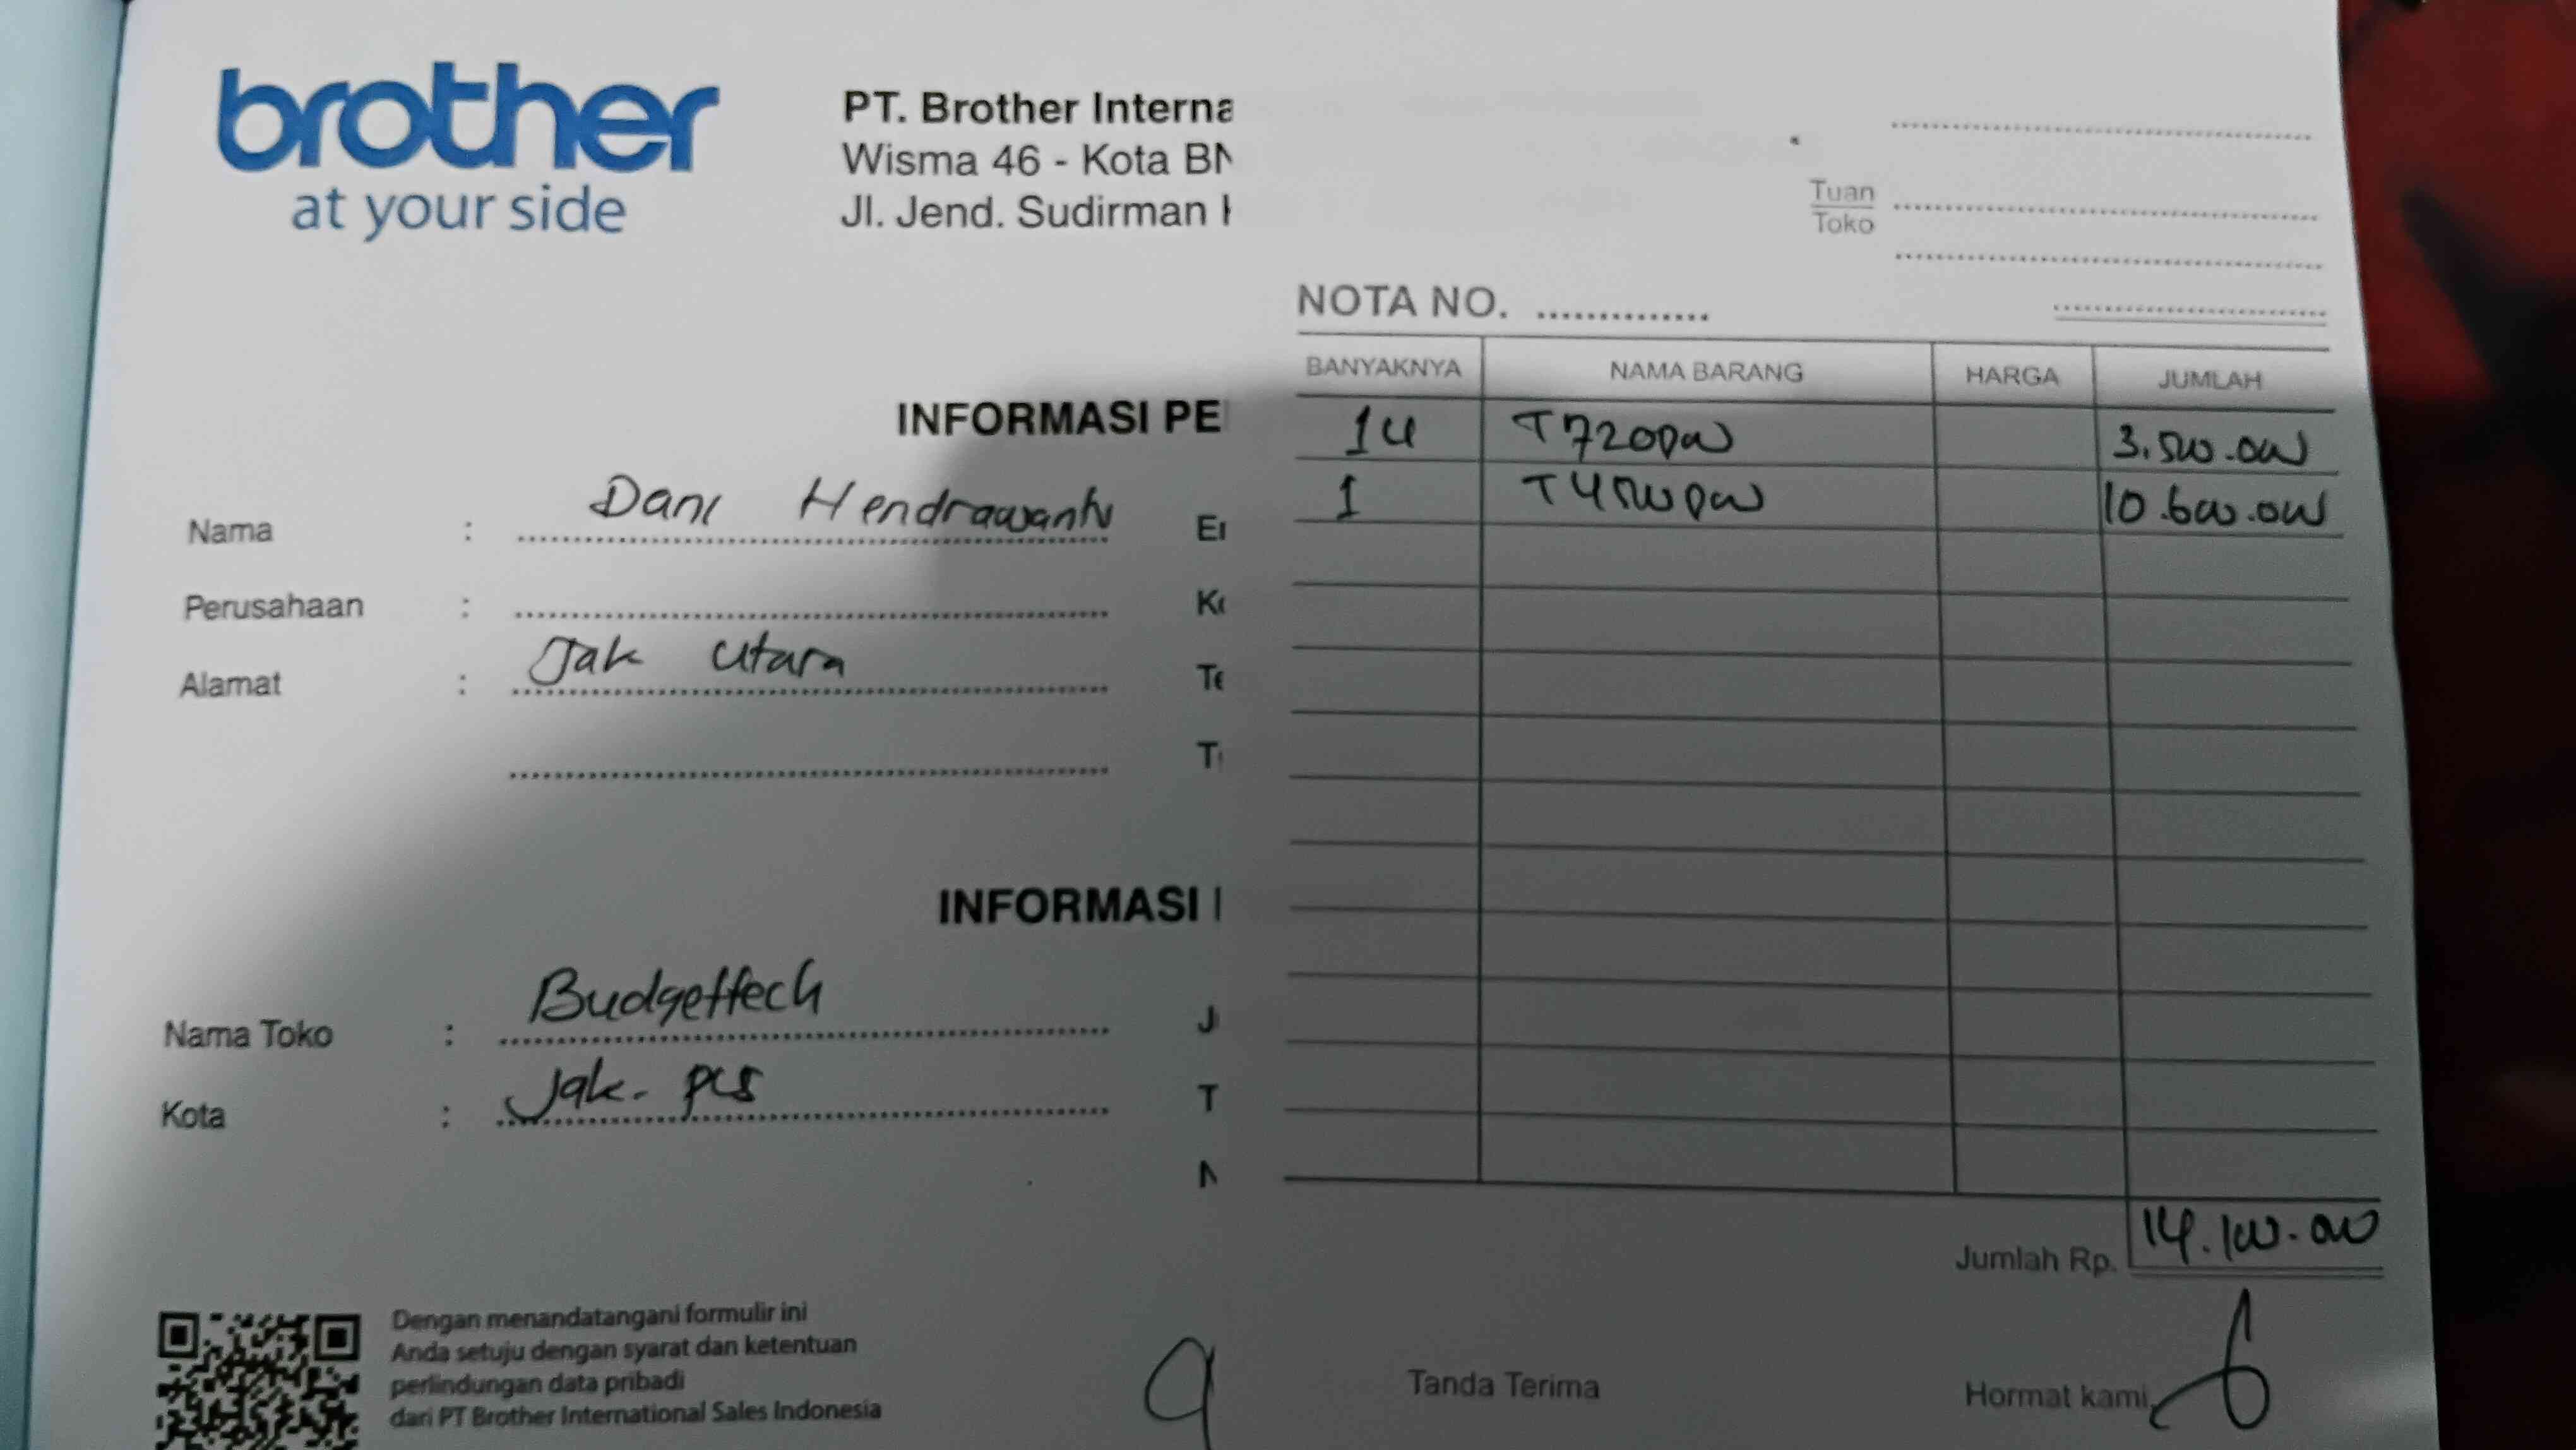 brother
at your side
PT. Brother Interna
Wisma 46 - Kota BN
Jl. Jend. Sudirman
INFORMASI PE
Nama : Dani Hendrawanto
Perusahaan :
Alamat : Jak Utara
INFORMASI
Nama Toko : Budgettech
Kota : Jak. pus
Dengan menandatangani formulir ini
Anda setuju dengan syarat dan ketentuan
perlindungan data pribadi
dari PT Brother International Sales Indonesia
Tuan
Toko
NOTA NO.
BANYAKNYA NAMA BARANG HARGA JUMLAH
14 T720DW 3.500.000
1 T4500DW 10.600.000
Jumlah Rp. 14.100.000
Tanda Terima Hormat kami,